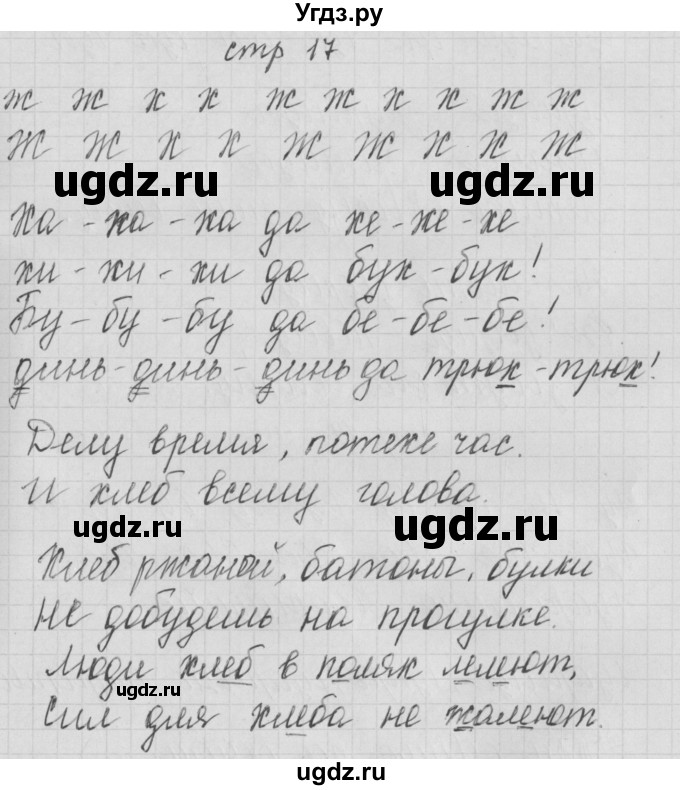 Угдз.ру
стр 17
ж ж х х ж ж х х ж ж
Ж Ж Х Х Ж Ж Х Х Ж
ugdz.ru ugdz.ru
Ха - ха - ха да хе - хе - хе
хи - хи - хи да бух - бух!
Бу - бу - бу да бе - бе - бе!
динь - динь - динь да трюк - трюк!
Делу время, потехе час.
И хлеб всему голова.
ugdz.ru ugdz.ru
Хлеб ржаной, батоны, булки
Не добудешь на прогулке.
Люди хлеб в полях лелеют,
ugdz.ru
Сил для хлеба не жалеют.
ugdz.ru